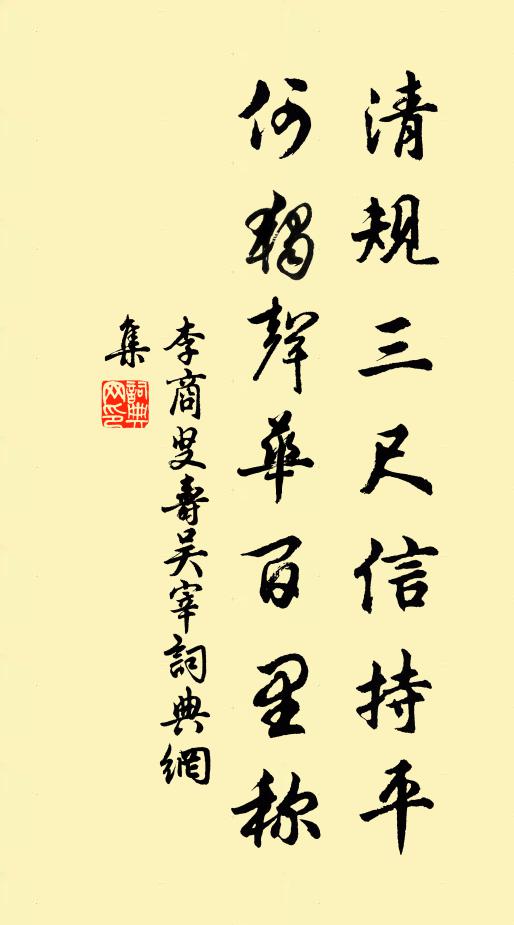 清規三尺信持平
何獨聲華百里称
李商叟壽吴宰詞典網
集
詞典
网印